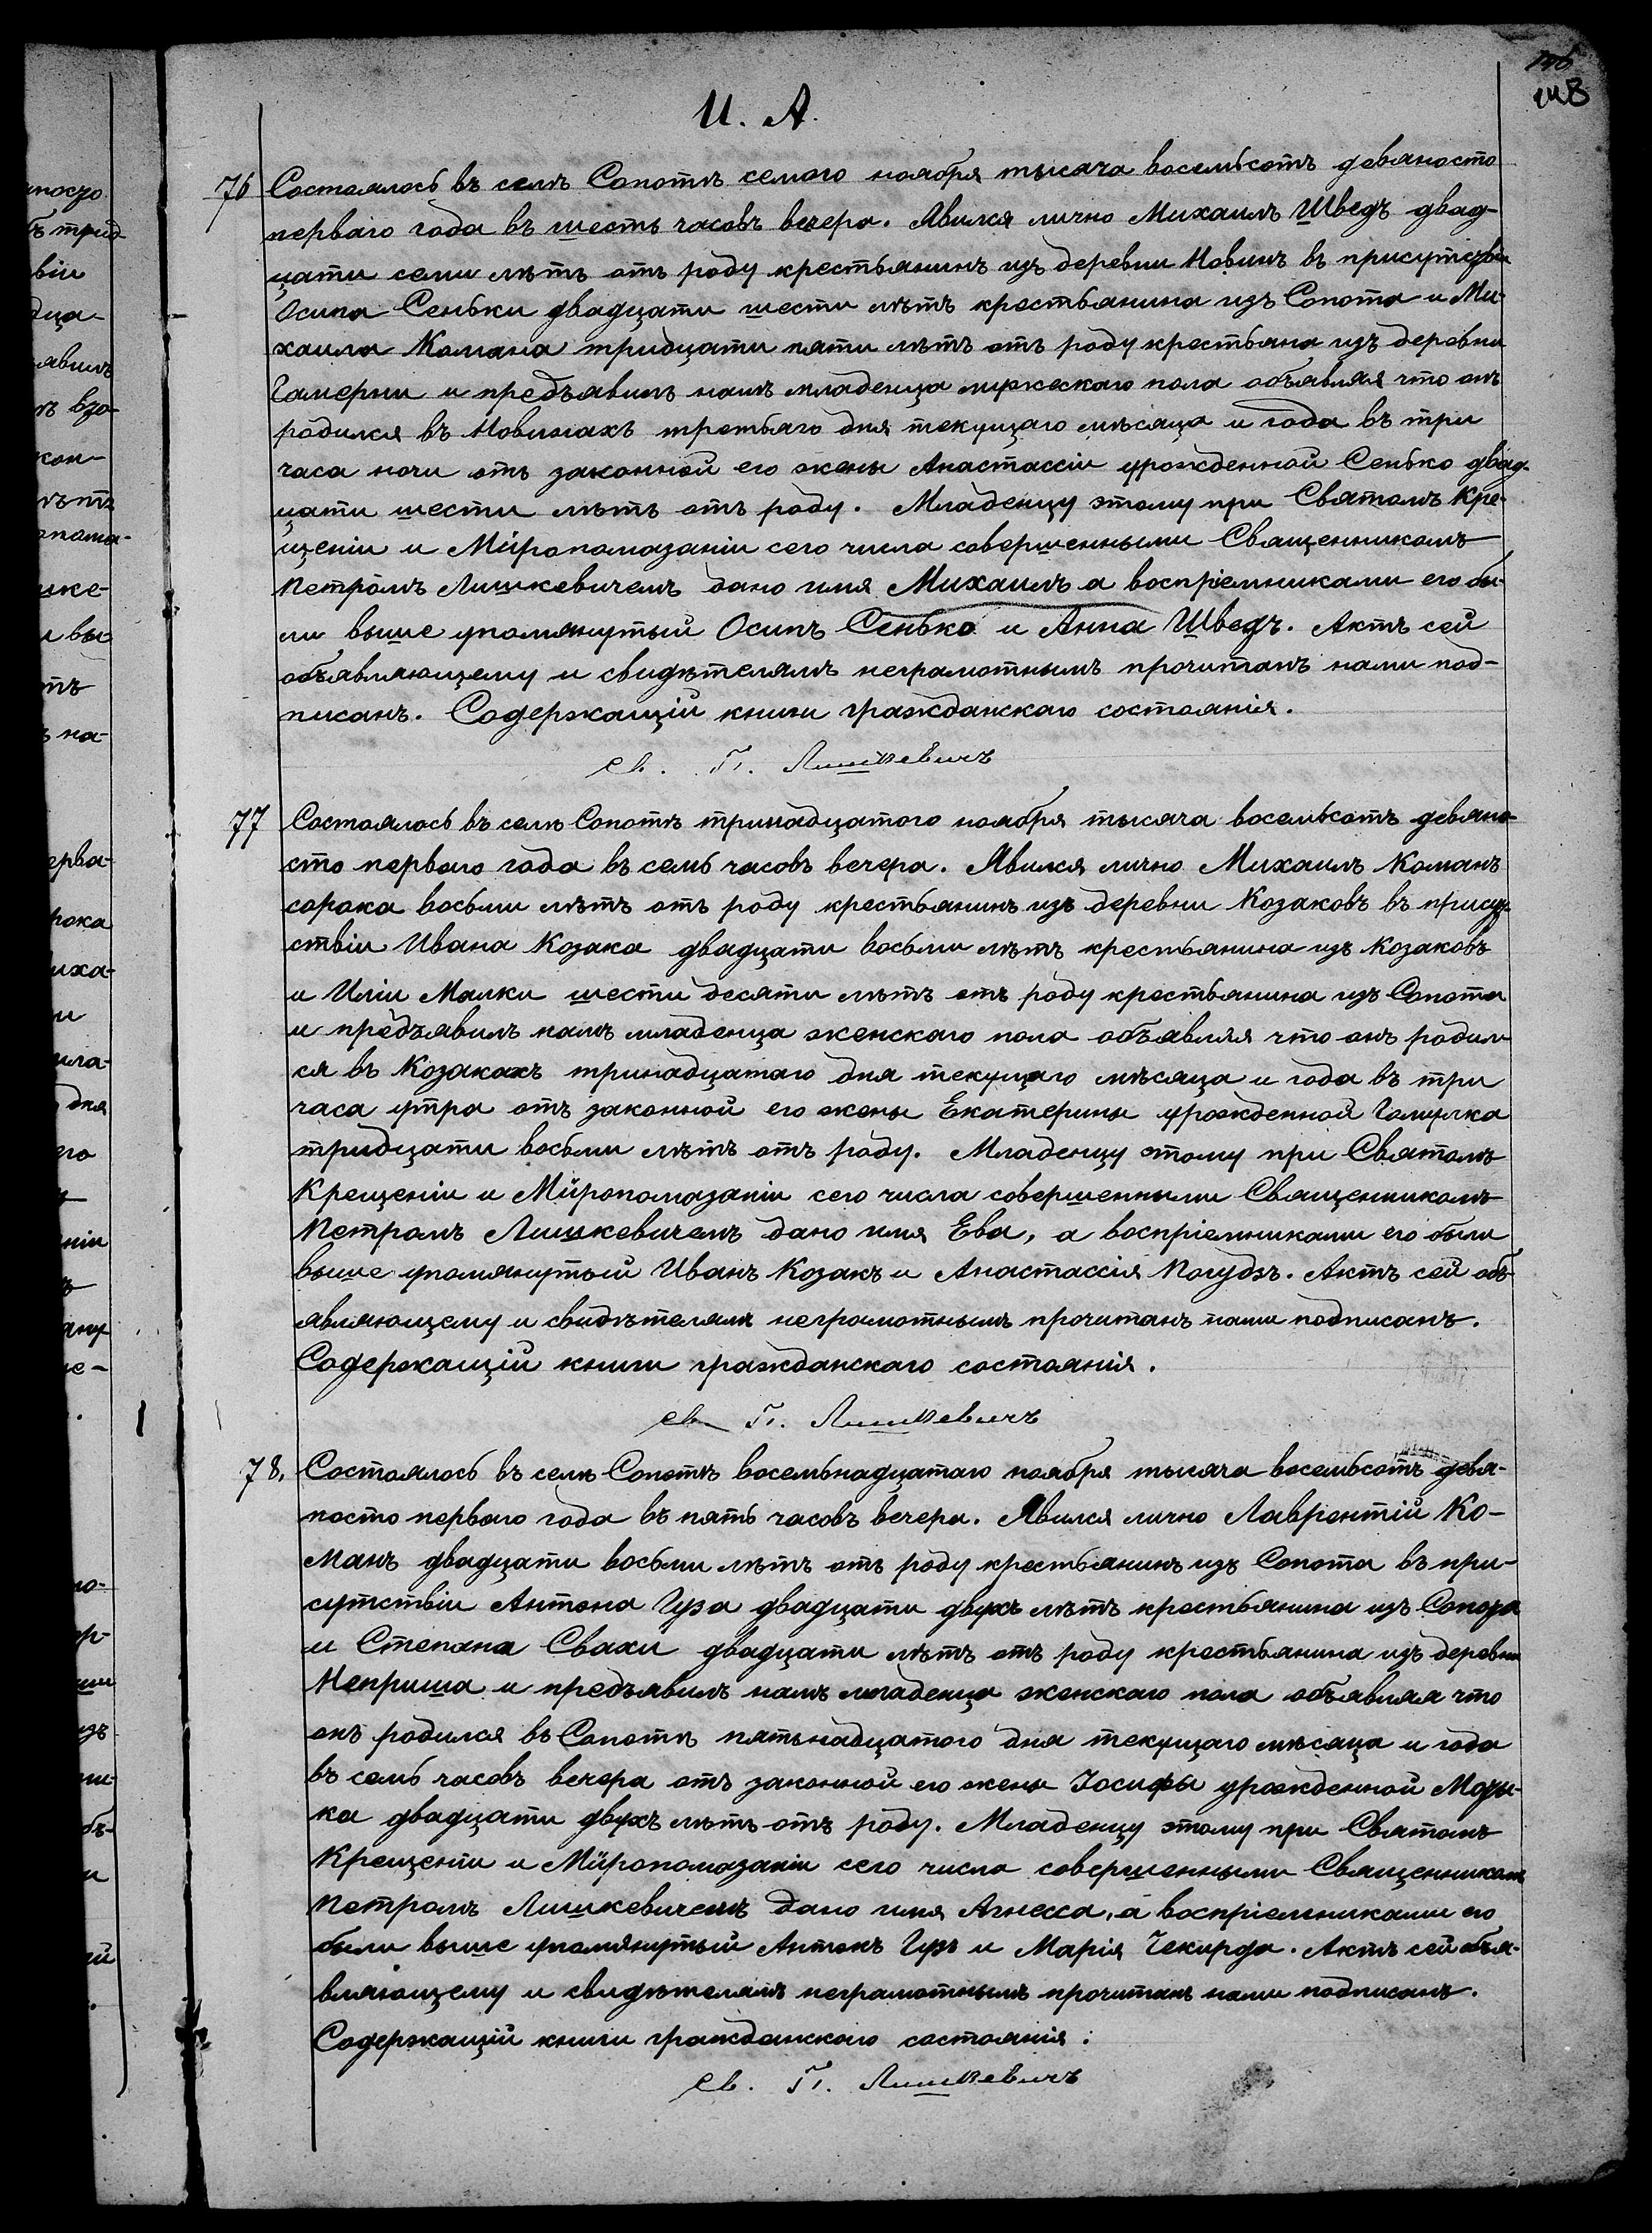 И. А.
76 Состоялось въ селѣ Сопотѣ семого ноября тысяча восемьсотъ девяносто
перваго года въ шесть часовъ вечера. Явился лично Михаилъ Шведъ двад-
цати семи лѣтъ отъ роду крестьянинъ изъ деревни Новинъ въ присутствіи
Осипа Сеньки двадцати шести лѣтъ крестьянина изъ Сопота и Ми-
хаила Комана тридцати пяти лѣтъ отъ роду крестьяна изъ деревни
Гамерни и предъявилъ намъ младенца мужескаго пола объявляя что онъ
родился въ Новинахъ третьяго дня текущаго мѣсяца и года въ три
часа ночи отъ законной его жены Анастассіи урожденной Сенько двад-
цати шести лѣтъ отъ роду. Младенцу этому при Святомъ Кре-
щеніи и Мѵропомазаніи сего числа совершенными Священникомъ
Петромъ Лишкевичемъ дано имя Михаилъ а воспріемниками его бы-
ли выше упомянутый Осипъ Сенько и Анна Шведъ. Актъ сей
объявляющему и свидѣтелямъ неграмотнымъ прочитанъ нами под-
писанъ. Содержащій книги гражданскаго состоянія.
Св. П. Лишкевичъ
77 Состоялось въ селѣ Сопотѣ тринадцатого ноября тысяча восемьсотъ девяно-
сто перваго года въ семь часовъ вечера. Явился лично Михаилъ Команъ
сорока восьми лѣтъ отъ роду крестьянинъ изъ деревни Козаковъ въ присут-
ствіи Ивана Козака двадцати восьми лѣтъ крестьянина изъ Козаковъ
и Иліи Малки шести десяти лѣтъ отъ роду крестьянина изъ Сопота
и предъявилъ намъ младенца женскаго пола объявляя что онъ родил-
ся въ Козакахъ тринадцатаго дня текущаго мѣсяца и года въ три
часа утра отъ законной его жены Екатерины урожденной Гомулка
тридцати восьми лѣтъ отъ роду. Младенцу этому при Святомъ
Крещеніи и Мѵропомазаніи сего числа совершенными Священникомъ
Петромъ Лишкевичемъ дано имя Ева, а воспріемниками его были
выше упомянутый Иванъ Козакъ и Анастассія Погудзь. Актъ сей объ-
являющему и свидѣтелямъ неграмотнымъ прочитанъ нами подписанъ.
Содержащій книги гражданскаго состоянія.
Св. П. Лишкевичъ
78. Состоялось въ селѣ Сопотѣ восемьнадцатаго ноября тысяча восемьсотъ девя-
носто перваго года въ пять часовъ вечера. Явился лично Лаврентій Ко-
манъ двадцати восьми лѣтъ отъ роду крестьянинъ изъ Сопота въ при-
сутствіи Антона Гуза двадцати двухъ лѣтъ крестьянина изъ Сопота
и Степана Свахи двадцати лѣтъ отъ роду крестьянина изъ деревни
Неприша и предъявилъ намъ младенца женскаго пола объявляя что
онъ родился въ Сопотѣ пятьнадцатого дня текущаго мѣсяца и года
въ семь часовъ вечера отъ законной его жены Іосифы урожденной Мазы-
ка двадцати двухъ лѣтъ отъ роду. Младенцу этому при Святомъ
Крещеніи и Мѵропомазаніи сего числа совершенными Священникомъ
Петромъ Лишкевичемъ дано имя Агнесса, а воспріемниками его
были выше упомянутый Антонъ Гузъ и Марія Чекирда. Актъ сей объя-
вляющему и свидѣтелямъ неграмотнымъ прочитанъ нами подписанъ.
Содержащій книги гражданскаго состоянія:
Св. П. Лишкевичъ